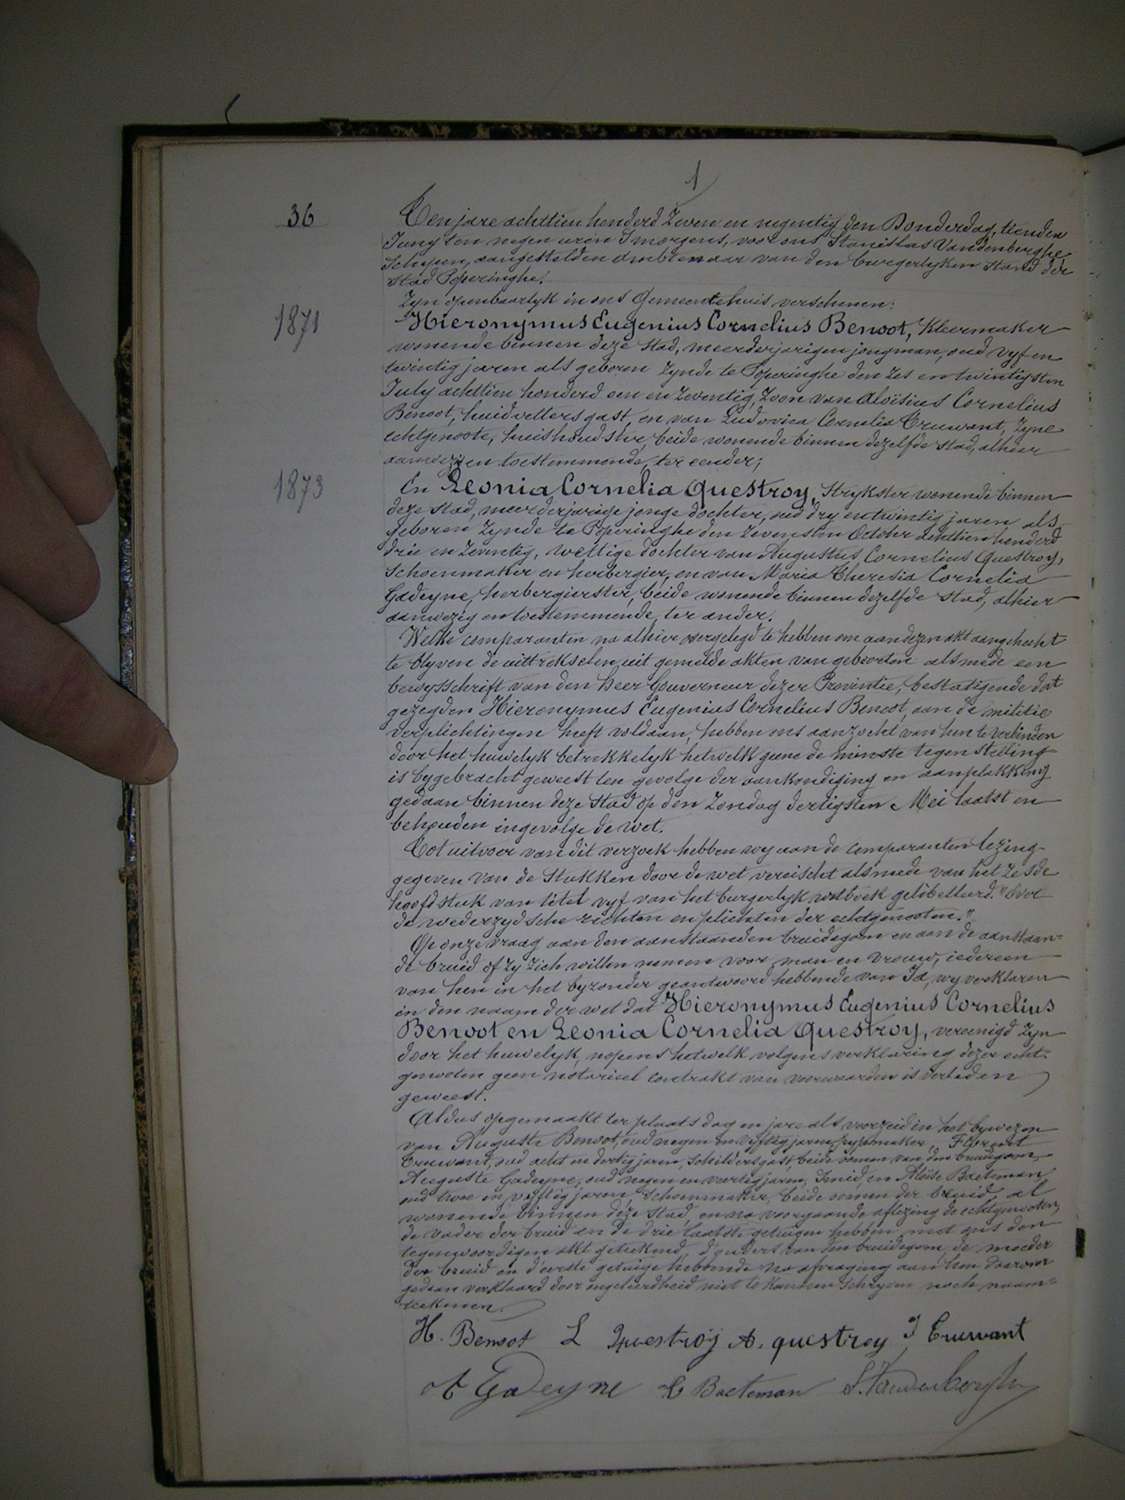 1
36
Ten jare achttien honderd zeven en negentig den Donderdag, tienden
Juny ten negen uren 's morgens, voor ons Stanislas Vandenberghe
Schepen, aangestelden ambtenaar van den burgerlyken stand der
stad Poperinghe.
Zyn openbaarlyk in ons Gemeentehuis verschenen:
1871
Hieronymus Eugenius Cornelius Benoot, Kleermaker
wonende binnen deze stad, meerderjarigen jongman, oud vyf en
twintig jaren als geboren zynde te Poperinghe den zes en twintigsten
July achttien honderd een en zeventig, zoon van Aloïsius Cornelius
Benoot, huidvettersgast, en van Ludovica Cornelia Cruwant, zyne
echtgenoote, huishoudster, beide wonende binnen dezelfde stad, alhier
aanwezig en toestemmende, ter eender;
1873
En Leonia Cornelia Questroy, Strykster wonende binnen
deze stad, meerderjarige jonge dochter, oud dry en twintig jaren als
geboren zynde te Poperinghe den zevensten October achttien honderd
drie en zeventig, wettige dochter van Augustus Cornelius Questroy,
schoenmaker en herbergier, en van Maria Theresia Cornelia
Gadeyne, herbergierster, beide wonende binnen dezelfde stad, alhier
aanwezig en toestemmende, ter ander.
Welke comparanten na alhier overgelegd te hebben om aan dezen akt aangehecht
te blyven de uittrekselen uit gemelde akten van geboorten alsmede een
bewysschrift van den Heer Gouverneur dezer Provintie, bestatigende dat
gezegden Hieronymus Eugenius Cornelius Benoot, aan de militie
verplichtingen heeft voldaan, hebben ons aanzocht van hun te verbinden
door het huwelyk betrekkelyk hetwelk geene de minste tegenstelling
is bygebracht geweest ten gevolge der aankondiging en aanplakking
gedaan binnen deze stad op den Zondag dertigsten Mei laatst en
behouden ingevolge de wet.
Tot uitvoer van dit verzoek hebben wy aan de comparanten lezing
gegeven van de stukken door de wet vereischt alsmede van het zesde
hoofdstuk van titel vyf van het burgerlyk wetboek gelibelleerd "Over
de wederzydsche rechten en plichten der echtgenooten."
Op onze vraag aan den aanstaanden bruidegom en aan de aanstaan=
de bruid of zy zich willen nemen voor man en vrouw, iedereen
van hen in het byzonder geantwoord hebbende van Ja, wy verklaren
in den naam der wet dat Hieronymus Eugenius Cornelius
Benoot en Leonia Cornelia Questroy, vereenigd zyn
door het huwelyk, nopens hetwelk volgens verklaring dezer echt-
genooten geen notarieel contrakt van voorwaarden is verleden
geweest.
Aldus opgemaakt ter plaats dag en jare als voorzeid in het bywezen
van Auguste Benoot, oud negen en vyftig jaren,
Cruwant, oud acht en dertig jaren, schildersgast, beide oomen van den bruidegom,
Auguste Gadeyne, oud negen en veertig jaren, Smid, en Aloïse Baeteman,
oud twee en vyftig jaren, schoenmaker, beide oomen der bruid, al
wonende binnen deze stad, en na voorgaande aflezing de echtgenooten,
de vader der bruid en de drie laatste getuigen hebben met ons den
tegenwoordigen akt geteekend, d'ouders van den bruidegom, de moeder
der bruid en d'eerste getuige hebbende na afvraging aan hen daarom
gedaan verklaard door ongeleerdheid niet te kunnen schryven noch naam=
teekenen.
H. Benoot L Questroÿ A. questroy Cruwant
Gadeyne Baeteman S. Vandenberghe